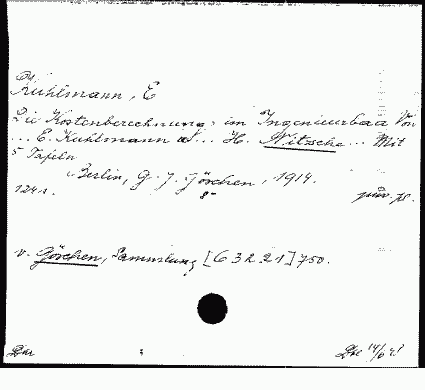 Kuhlmann, E
Die Kostenberechnung im Ingenieurbau Von
... E. Kuhlmann ... H. Nitzsche ... Mit
5 Tafeln
Berlin, G. J. Göschen, 1914.
124 s. 8°
v. Göschen, Sammlung [G 32 21] 750.